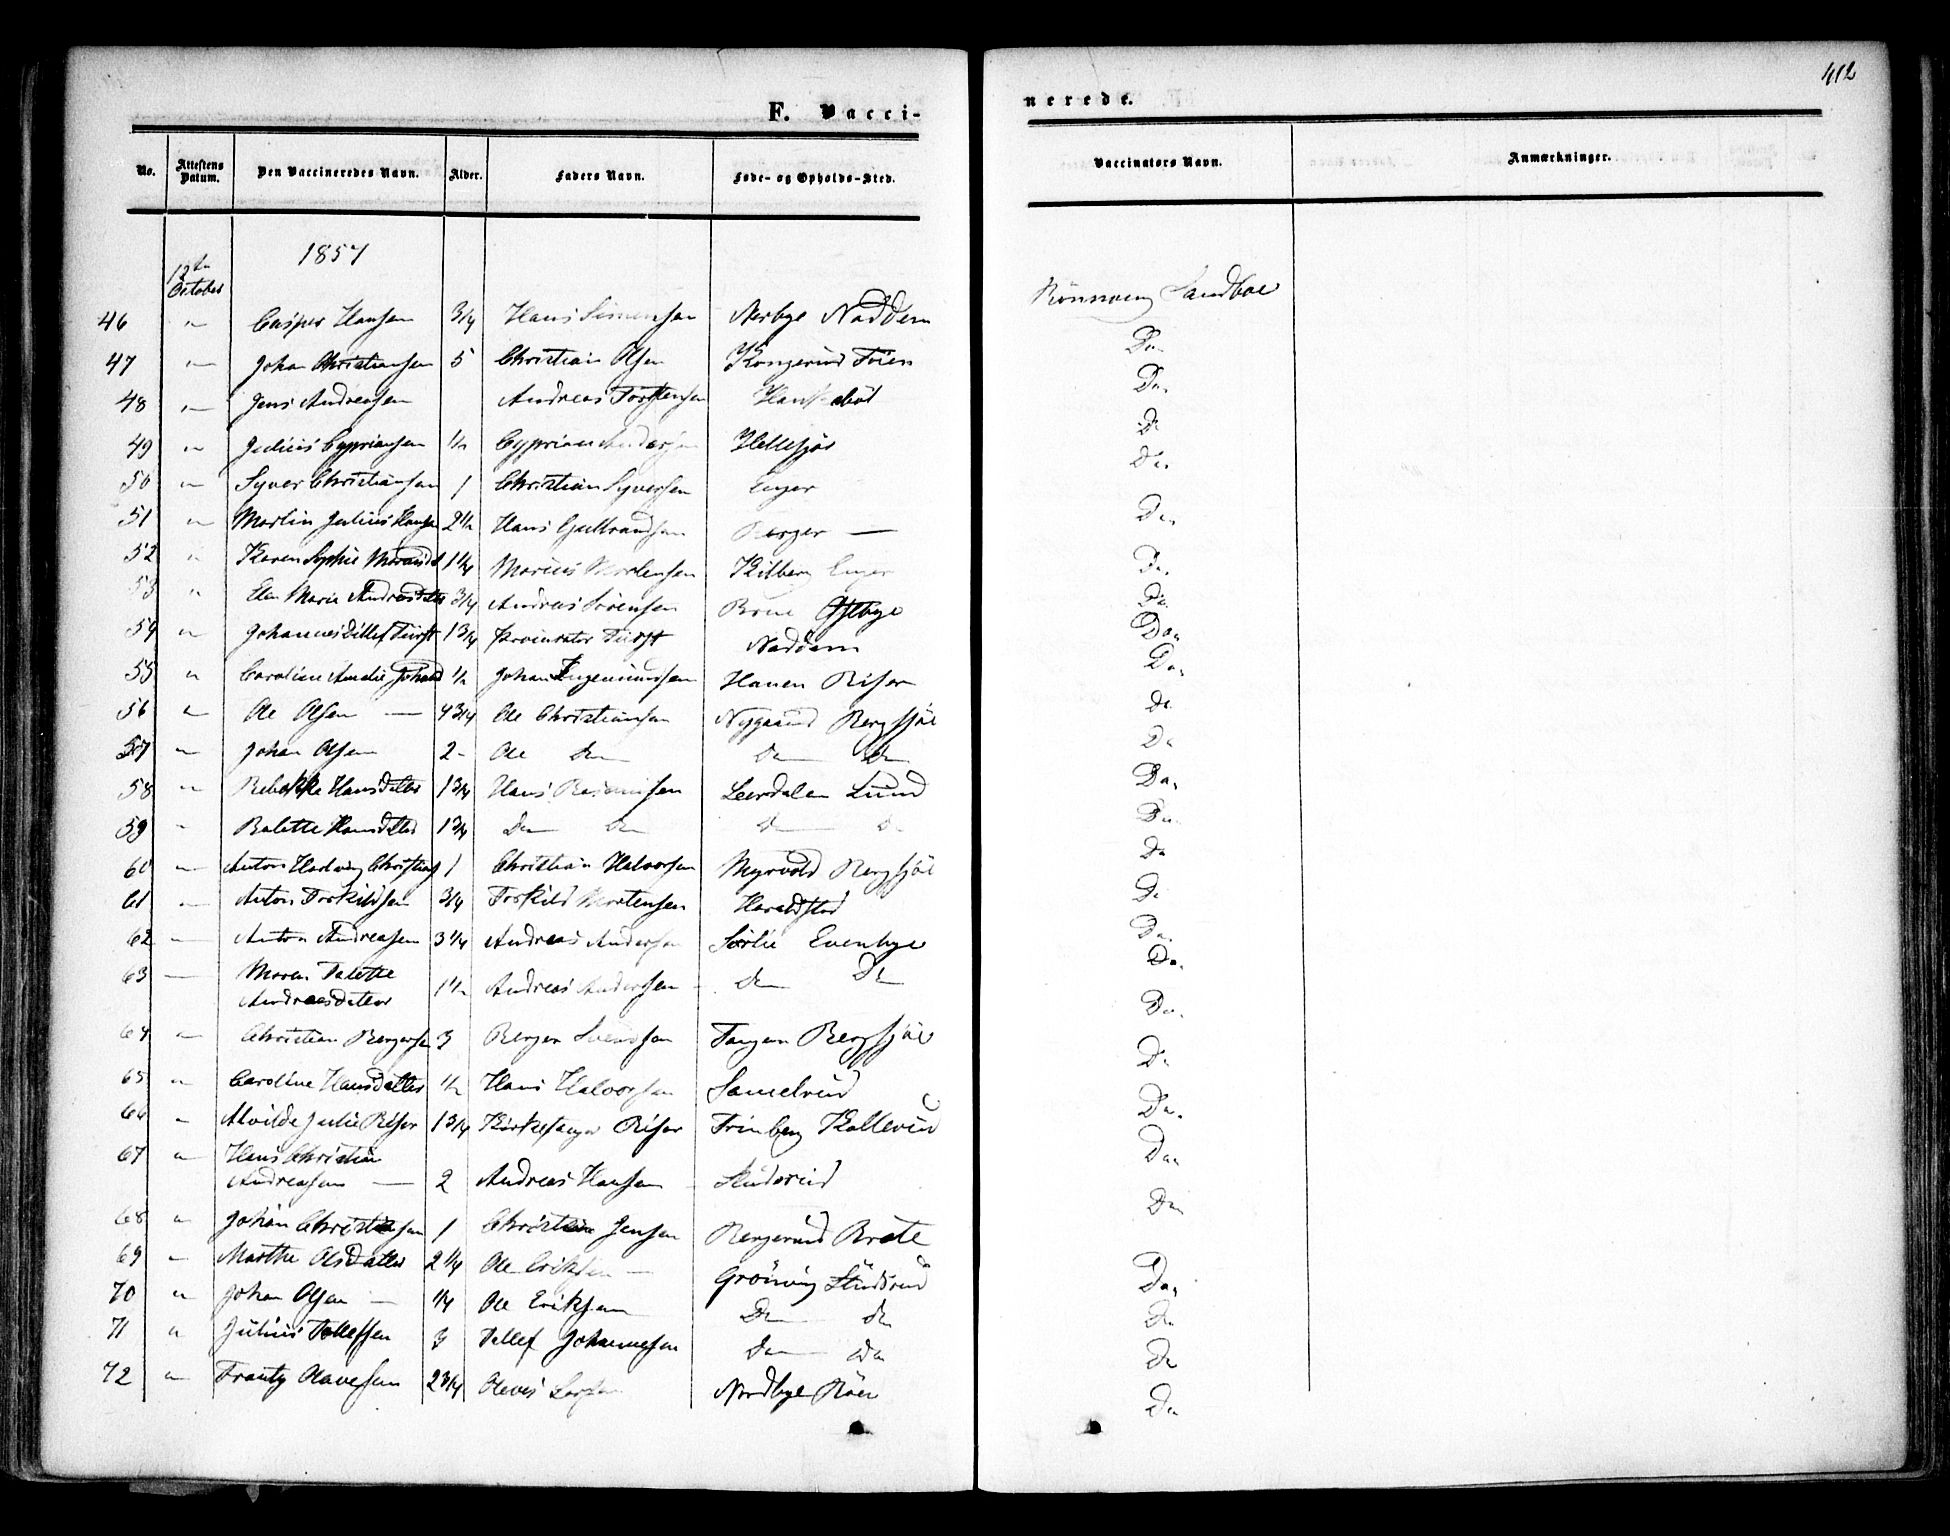 412
F. Vacci-
nerede.
No. Attestens Datum. Den Vaccineredes Navn. Alder. Faders Navn. Føde- og Opholds-Sted. Vaccinators Navn. Anmærkninger.
1857
12te October
46 " Casper Hansen 3/4 Hans Simensen Aarbye Naddum Rönnaug Sandboe
47 " Johan Christiansen 5 Christian Olsen Kongerud Do
48 " Jens Andreasen Andreas Torstensen Do
49 " Julius Cypriansen 1/2 Cyprian Andersen Hellesjøe Do
50 " Syver Christiansen 1 Christian Syversen Enger Do
51 " Martin Julius Hansen 2 1/2 Hans Gulbrandsen Berger — Do
52 " Karen Sophie 1 1/4 Marius Mortensen Kilberg Enger Do
53 " Elen Marie Andreasdatter 3/4 Andreas Sörensen Østbye Do
54 " Johannes Ditlef Fürst 1 3/4 Procurator Fürst Naddum Do
55 " Caroline Amalie Johansd 1/2 Johan Ingemundsen Hauen Riser Do
56 " Ole Olsen — 4 3/4 Ole Christiansen Nygaard Bergsjøe Do
57 " Johan Olsen 2 - Ole Do Do Do Do
58 " Rebekke Hansdatter 1 3/4 Hans Leerdalen Lund Do
59 " Balette Hansdatter 1 3/4 Do Do Do Do Do
60 " Anton Hartwig Christians 1 Christian Halvorsen Myrvold Bergsjøe Do
61 " Anton Torkildsen 3/4 Torkild Mortensen Haraldstad Do
62 " Anton Andreasen 3 1/4 Andreas Andersen Sørlie Evenbye Do
63 — Maren Talette
Andreasdatter 1 1/2 Andreas Andersen Do Do Do
64 " Christian Bergersen 3 Berger Svendsen Tangen Bergsjøe Do
65 " Caroline Hansdatter 1/2 Hans Halvorsen Samelrud Do
66 " Alvilde Julie Riser 1 3/4 Kirkesanger Riser Trinborg Kollerud Do
67 " Hans Christian
Andreasen — 2 Andreas Hansen Studsrud Do
68 " Johan Christensen 1 Christian Jensen Bergerud Brate Do
69 " Marthe Olsdatter 2 1/4 Ole Eriksen — Grönvig Studsrud Do
70 " Johan Olsen — 1/4 Ole Eriksen Do do Do
71 " Julius Tollefsen 3 Tollef Johannesen Do Do Do
72 " Frantz Olavesen 2 3/4 Olaves Larsen Nordbye Röer Do